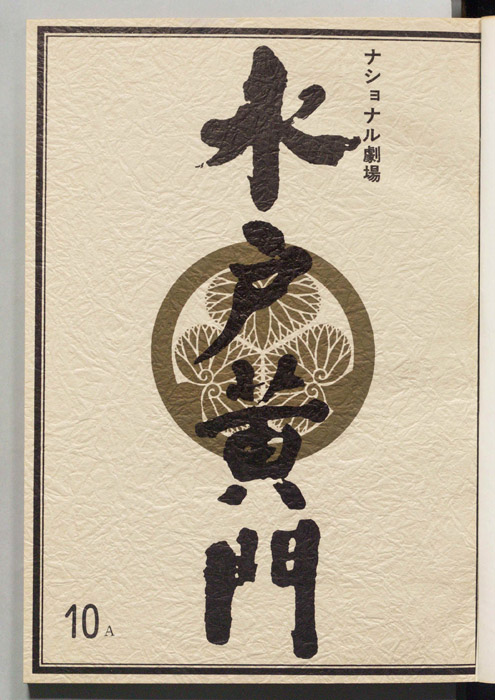 ナショナル劇場
水戸黄門
10A